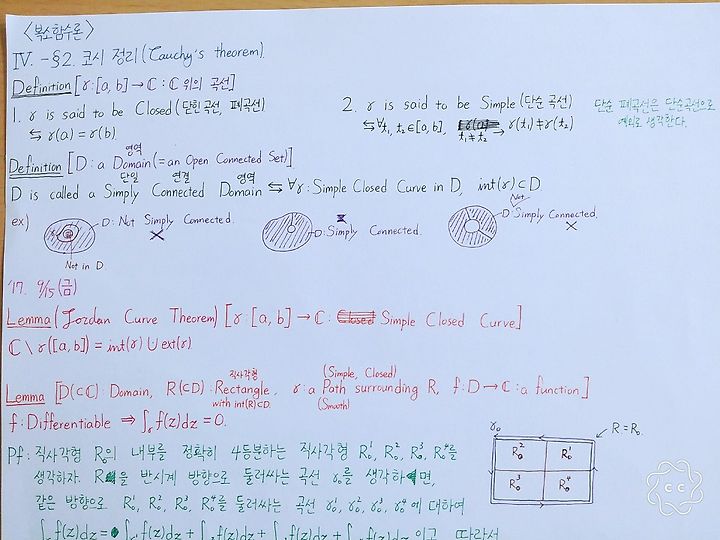 <복소함수론>
IV. - §2. 코시 정리 (Cauchy's theorem).
Definition [γ:[a, b] → ℂ : ℂ 위의 곡선]
1. γ is said to be Closed (닫힌곡선, 폐곡선)
⇆ γ(a) = γ(b)
2. γ is said to be Simple (단순 곡선)
⇆ ∀t₁, t₂ ∈ [a, b], t₁≠t₂ ⇒ γ(t₁) ≠ γ(t₂)
단순 폐곡선은 단순곡선으로
예외로 생각한다.
영역
Definition [D : a Domain (= an Open Connected Set)]
단일 연결 영역
D is called a Simply Connected Domain ⇆ ∀γ : Simple Closed Curve in D, int(γ) ⊂ D
ex)
D : Not Simply Connected.
Not in D.
D : Simply Connected.
Not
D Simply Connected.
'17. 9/15 (금)
Lemma (Jordan Curve Theorem) [γ : [a, b] → ℂ : Simple Closed Curve]
ℂ \ γ([a, b]) = int(γ) ∪ ext(γ)
직사각형 (Simple, Closed)
Lemma [D(⊂ℂ) : Domain, R(⊂D) : Rectangle, γ : a Path surrounding R, f : D → ℂ : a function]
with int(R)⊂D. (Smooth)
f : Differentiable ⇒ ∫γ f(z)dz = 0.
Pf : 직사각형 R₀의 내부를 정확히 4등분하는 직사각형 R₀¹, R₀², R₀³, R₀⁴를
생각하자. R을 반시계 방향으로 둘러싸는 곡선 γ₀를 생각하면,
같은 방향으로 R₀¹, R₀², R₀³, R₀⁴를 둘러싸는 곡선 γ₀¹, γ₀², γ₀³, γ₀⁴에 대하여
f(z)dz = f(z)dz + f(z)dz + f(z)dz + f(z)dz 이고, 따라서
γ₀
R = R₀
R₀² R₀¹
R₀³ R₀⁴
CC